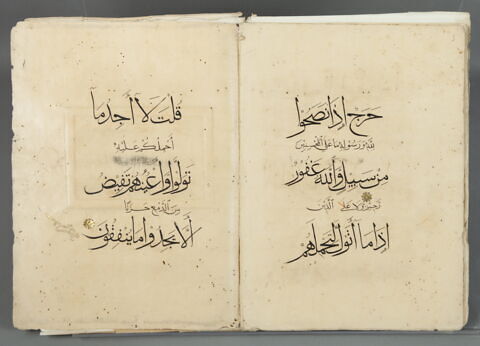 حرج اذا نصحوا
لله ورسوله ما على المحسنين
من سبيل والله غفور
رحيم ولا على الذين
اذا ما اتوك لتحملهم
قلت لا اجد ما
احملكم عليه
تولوا واعينهم تفيض
من الدمع حزنا
الا يجدوا ما ينفقون